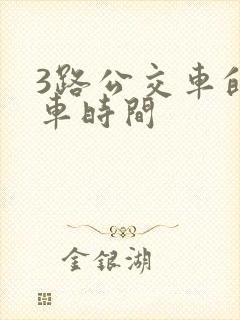 3路公交車
車時間
金銀湖